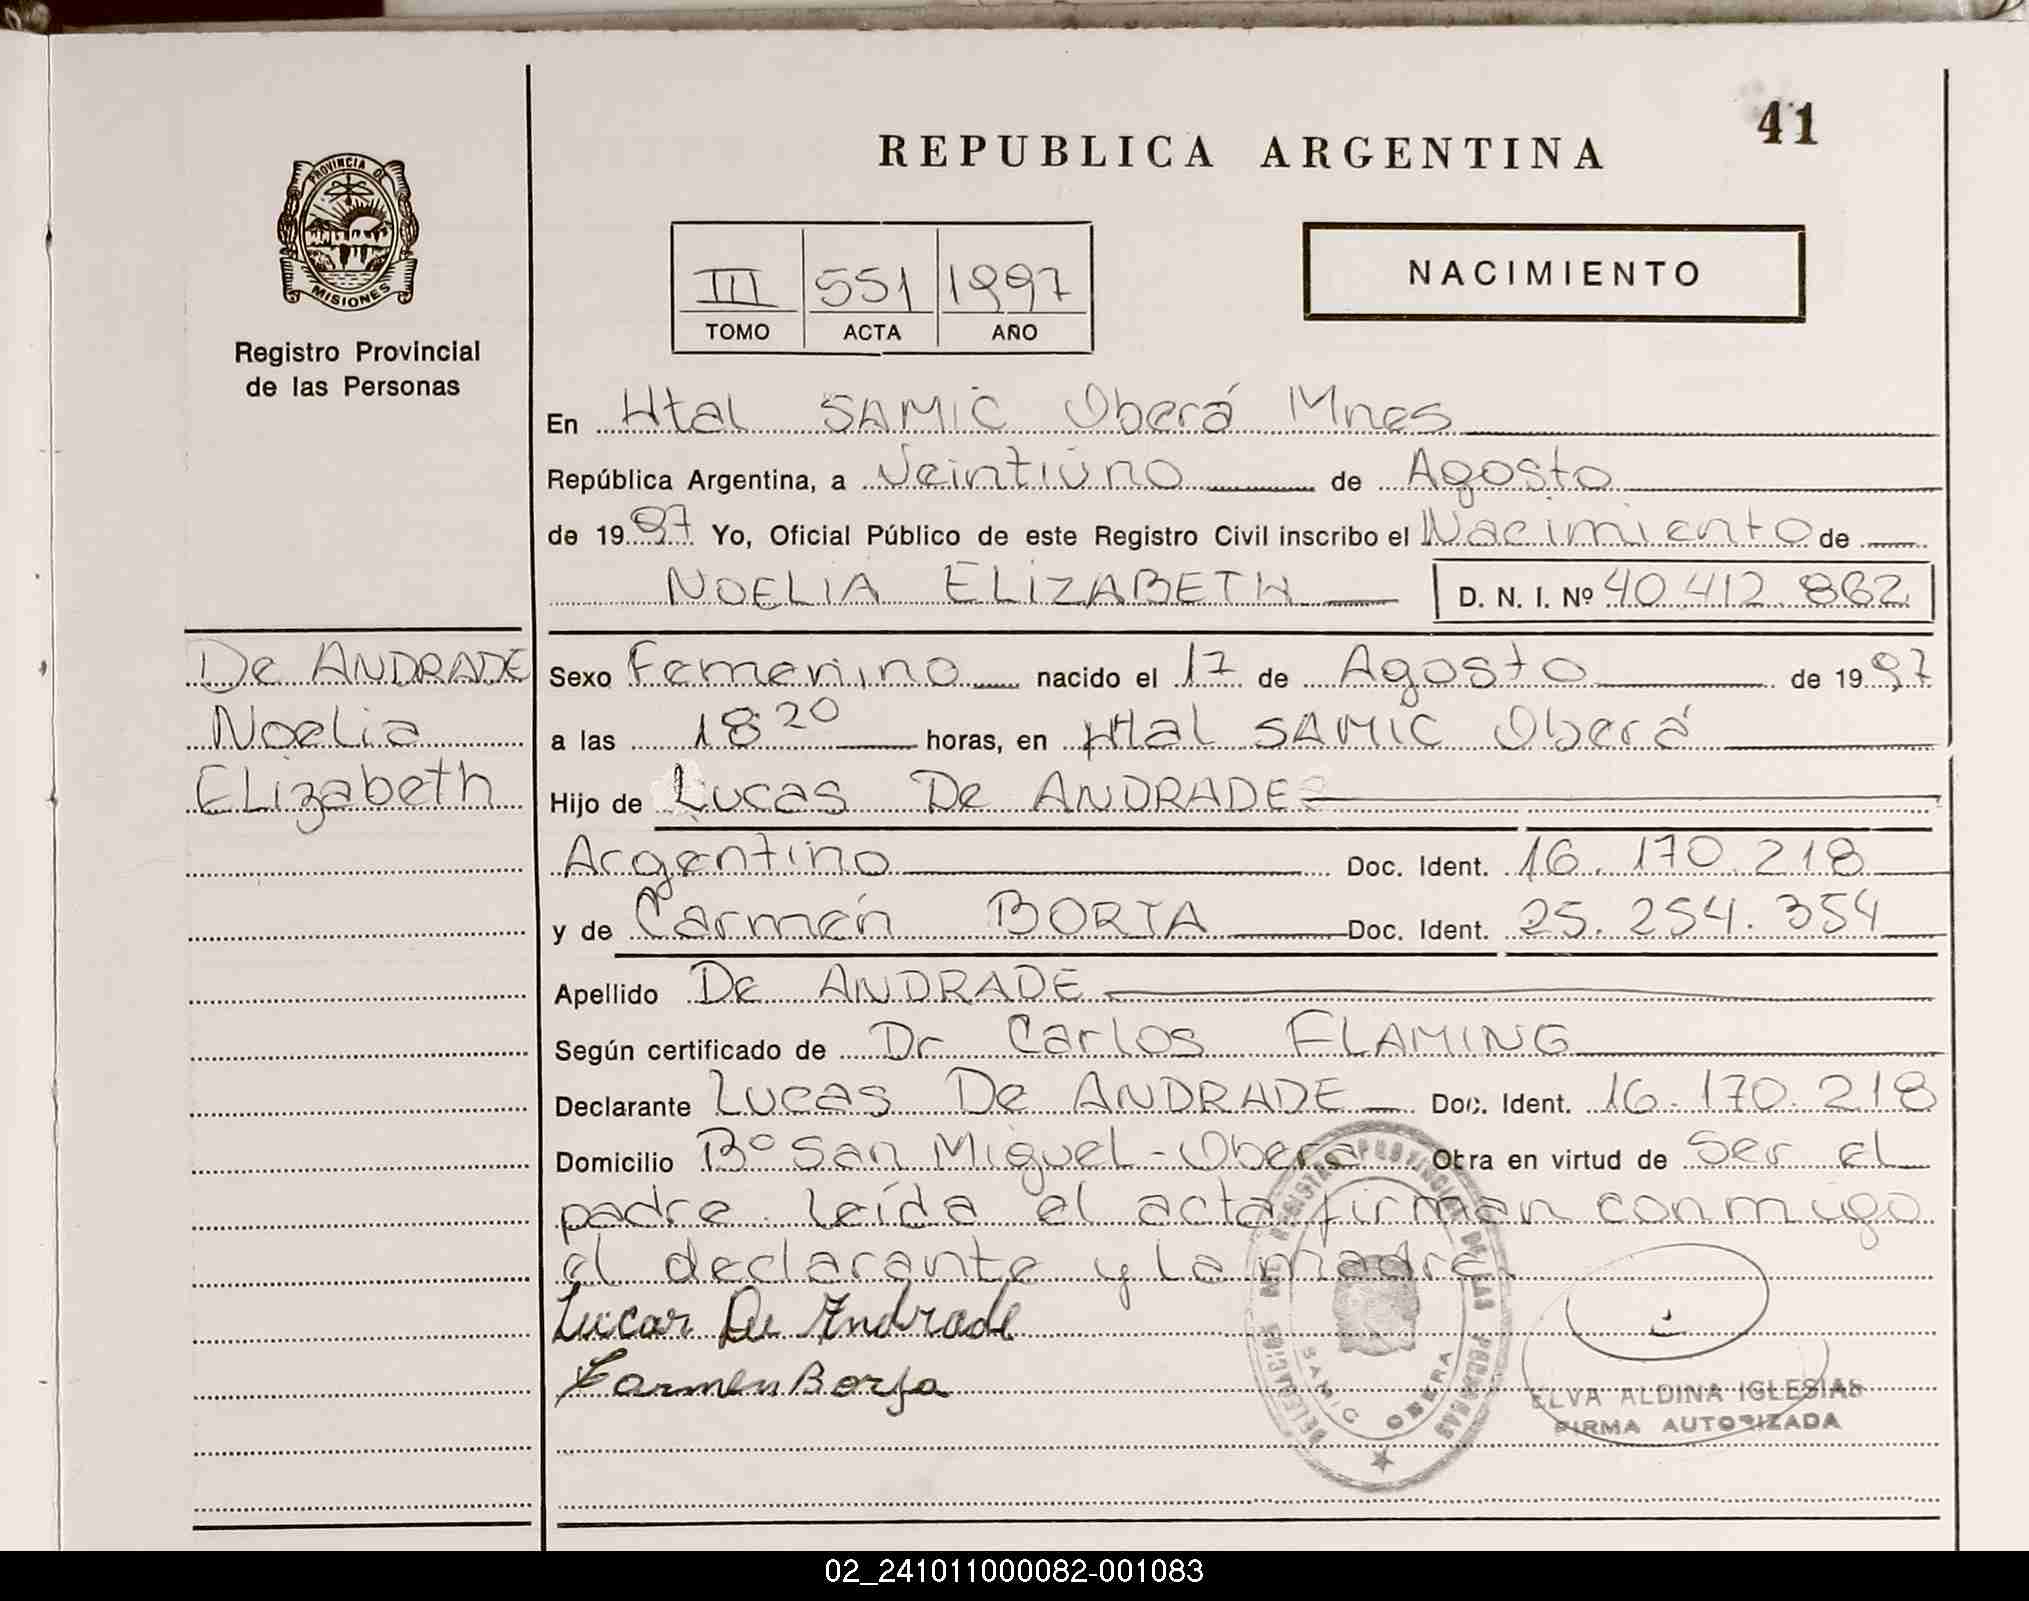 41
REPUBLICA ARGENTINA
PROVINCIA DE
MISIONES
Registro Provincial
de las Personas
III 551 1997
TOMO ACTA AÑO
NACIMIENTO
En Htal SAMIC Oberá Mnes
República Argentina, a Veintiúno de Agosto
de 1997 Yo, Oficial Público de este Registro Civil inscribo el Nacimiento de
NOELIA ELIZABETH D. N. I. Nº 40.412.862
De ANDRADE
Noelia
Elizabeth
Sexo Femenino nacido el 17 de Agosto de 1997
a las 18 20 horas, en Htal SAMIC Oberá
Hijo de Lucas De ANDRADE
Argentino Doc. Ident. 16.170.218
y de Carmen BORJA Doc. Ident. 25.254.354
Apellido De ANDRADE
Según certificado de Dr Carlos FLAMING
Declarante Lucas De ANDRADE Doc. Ident. 16.170.218
Domicilio Bº San Miguel - Oberá Otra en virtud de Ser el
padre. Leída el acta firman conmigo
el declarante y la madre.
Lucas De Andrade
Carmen Borja
DELEGACION DEL REGISTRO PROVINCIAL DE LAS PERSONAS
SAMIC OBERA
ELVA ALDINA IGLESIAS
FIRMA AUTORIZADA
02_241011000082-001083